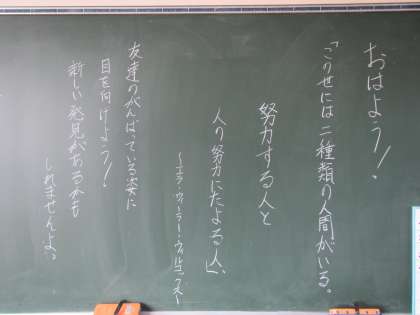 おはよう！
「この世には二種類の人間がいる。
努力する人と
人の努力にたよる人」
〜エラ・ウィーラー・ウィルコックス〜
友達のがんばっている姿に
目を向けよう！
新しい発見があるかも
しれませんよ。